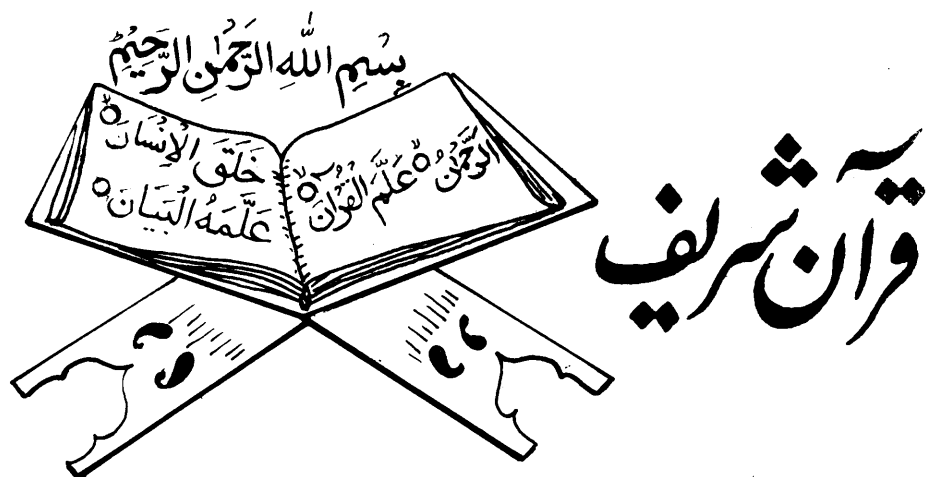 بِسْمِ اللهِ الرَّحْمٰنِ الرَّحِيْمِ
الرَّحْمٰنُ عَلَّمَ الْقُرْآنَ
خَلَقَ الْإِنْسَانَ
عَلَّمَهُ الْبَيَانَ
قرآن شریف